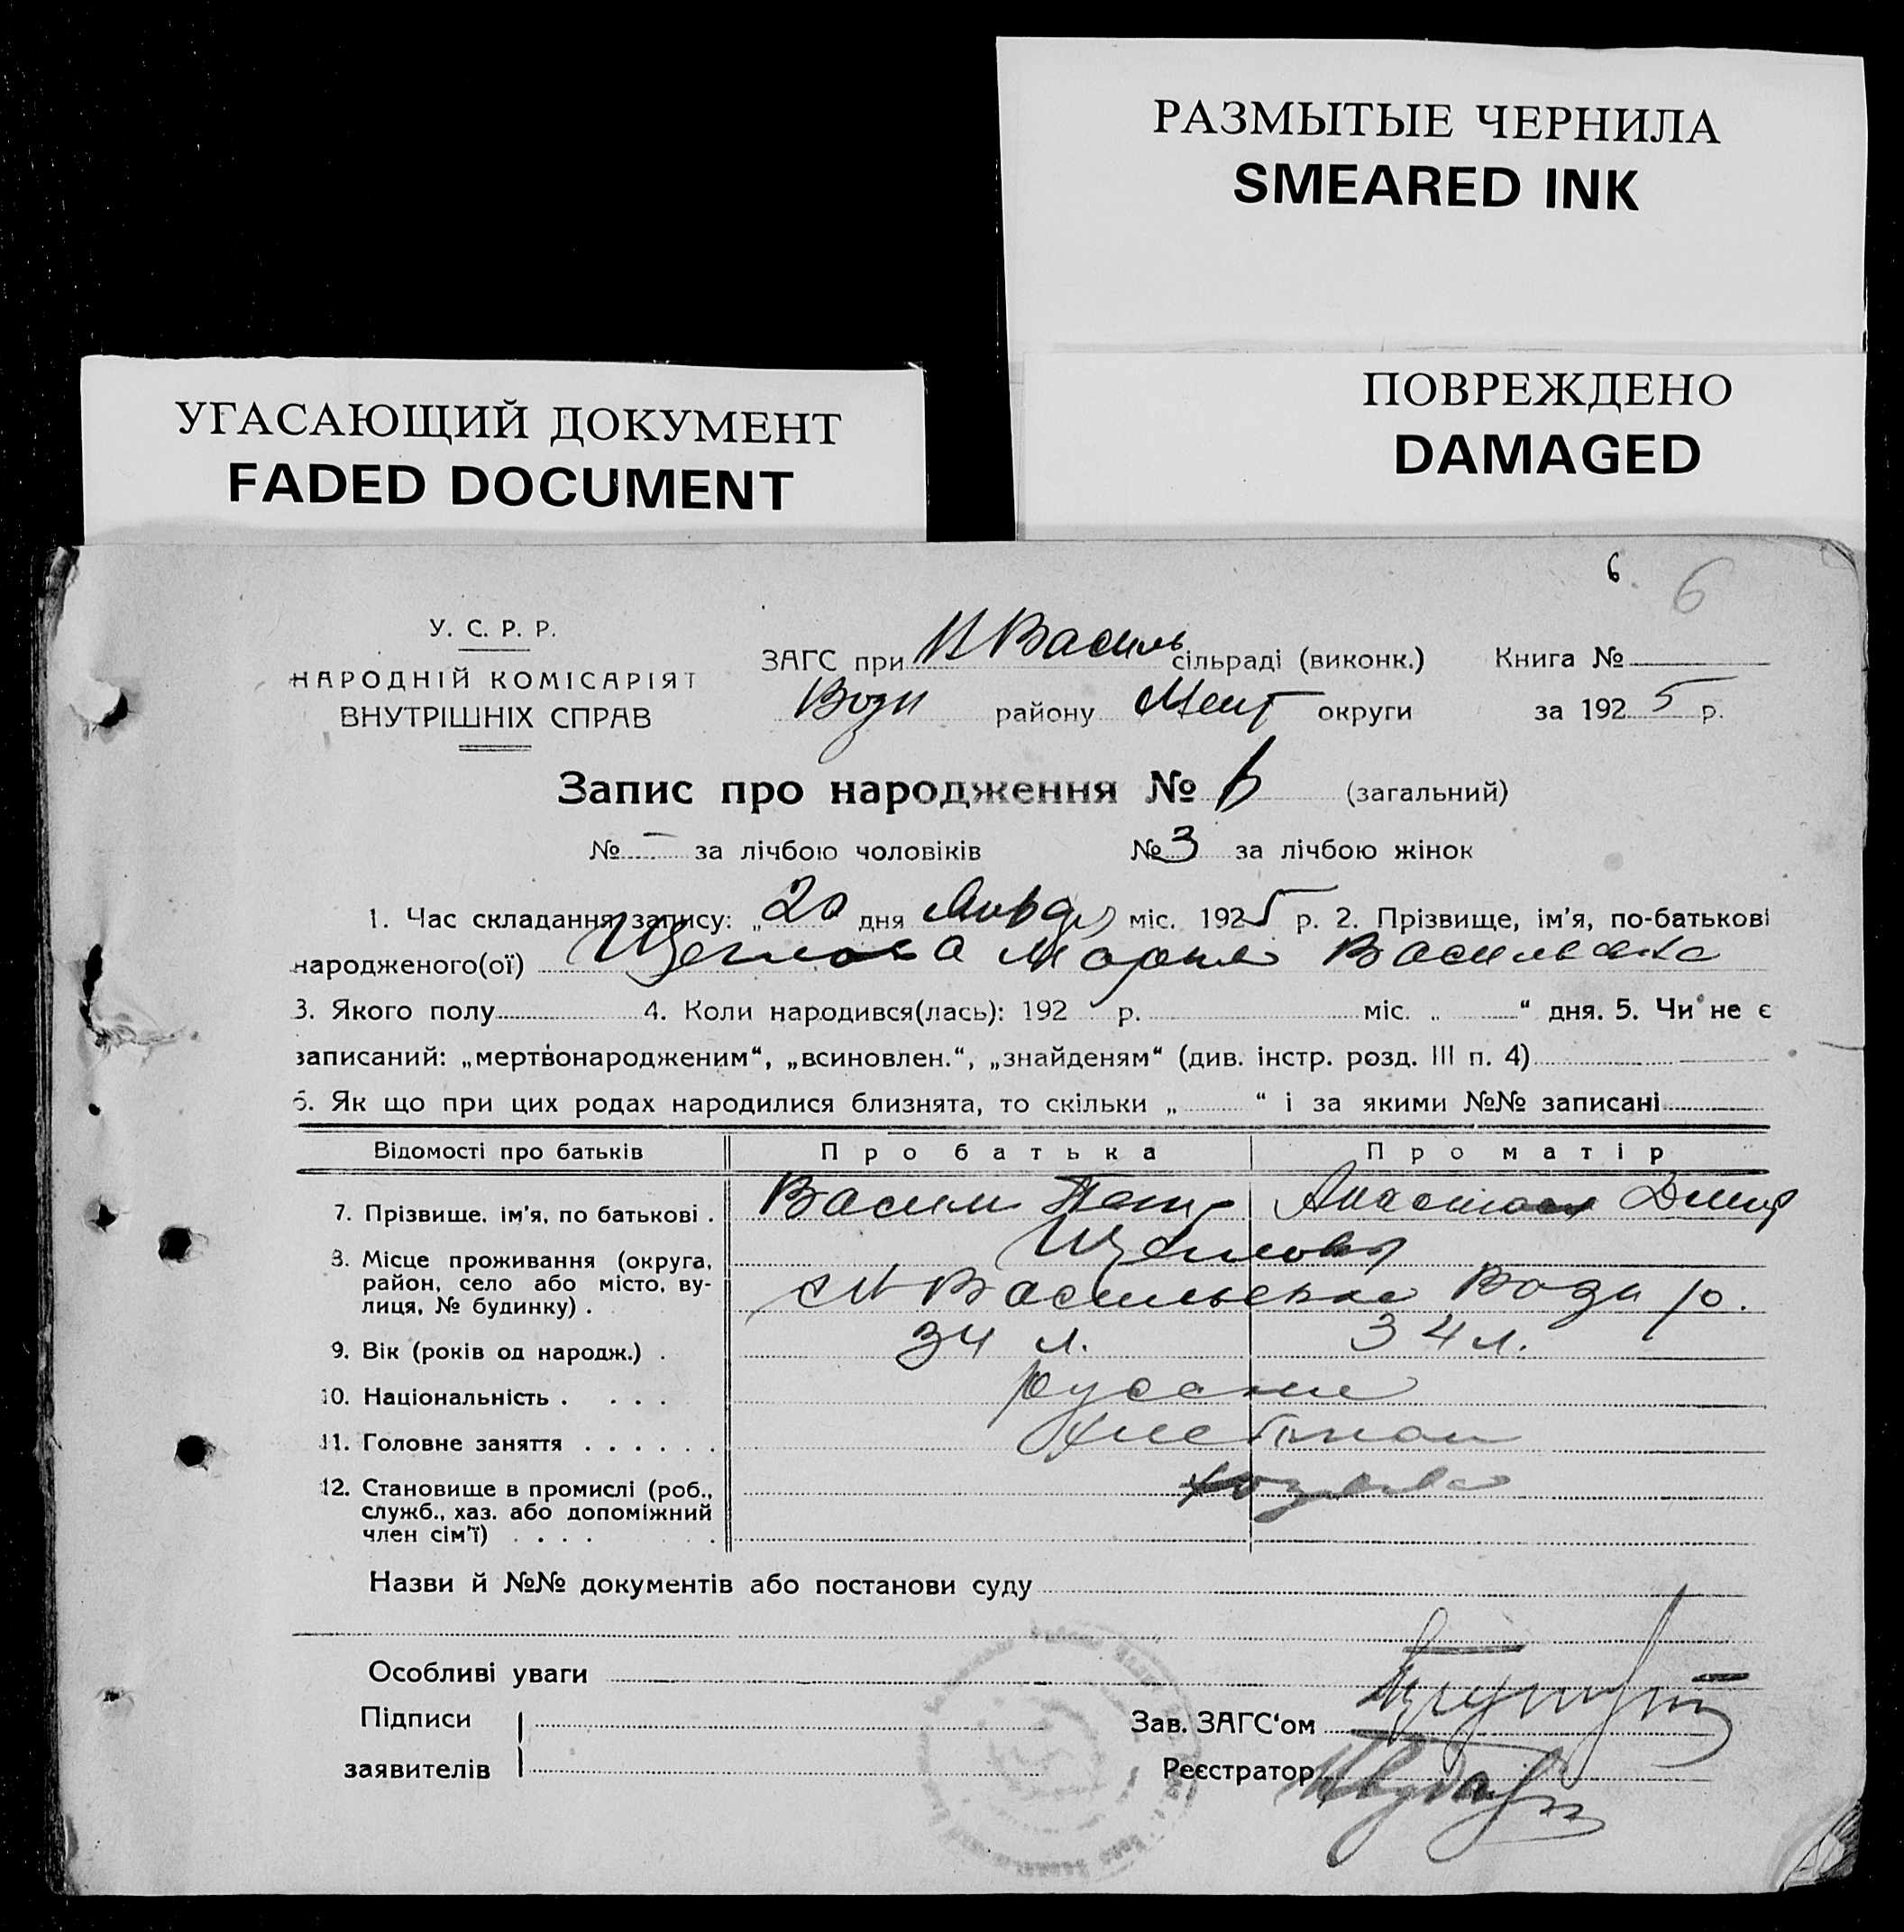 РАЗМЫТЫЕ ЧЕРНИЛА
SMEARED INK
ПОВРЕЖДЕНО
DAMAGED
УГАСАЮЩИЙ ДОКУМЕНТ
FADED DOCUMENT
6 6
У. С. Р. Р.
НАРОДНІЙ КОМІСАРІЯТ
ВНУТРІШНІХ СПРАВ
ЗАГС при Н Василь сільраді (виконк.) Книга №
району округи за 1925 р.
Запис про народження № 6 (загальний)
№ - за лічбою чоловіків № 3 за лічбою жінок
1. Час складання запису: „20 дня міс. 1925 р. 2. Прізвище, ім’я, по-батькові
народженого(ої) Мария Васильевна
3. Якого полу 4. Коли народився(лась): 192 р. міс. „ “ дня. 5. Чи не є
записаний: „мертвонародженим“, „всиновлен.“, „знайденям“ (див. інстр. розд. III п. 4)
6. Як що при цих родах народилися близнята, то скільки „ “ і за якими №№ записані
Відомості про батьків Про батька Про матір
7. Прізвище, ім’я, по батькові . Васили Петр Анастасия Дмит
8. Місце проживання (округа,
район, село або місто, ву-
лиця, № будинку) . Васильевка р.
9. Вік (років од народж.) . 34 л. 34 л.
10. Національність . . . . русские
11. Головне заняття . . . . . .
12. Становище в промислі (роб.,
служб., хаз. або допоміжний
член сім’ї) . . . .
Назви й №№ документів або постанови суду
Особливі уваги
Підписи
заявителів
Зав. ЗАГС‘ом
Реєстратор